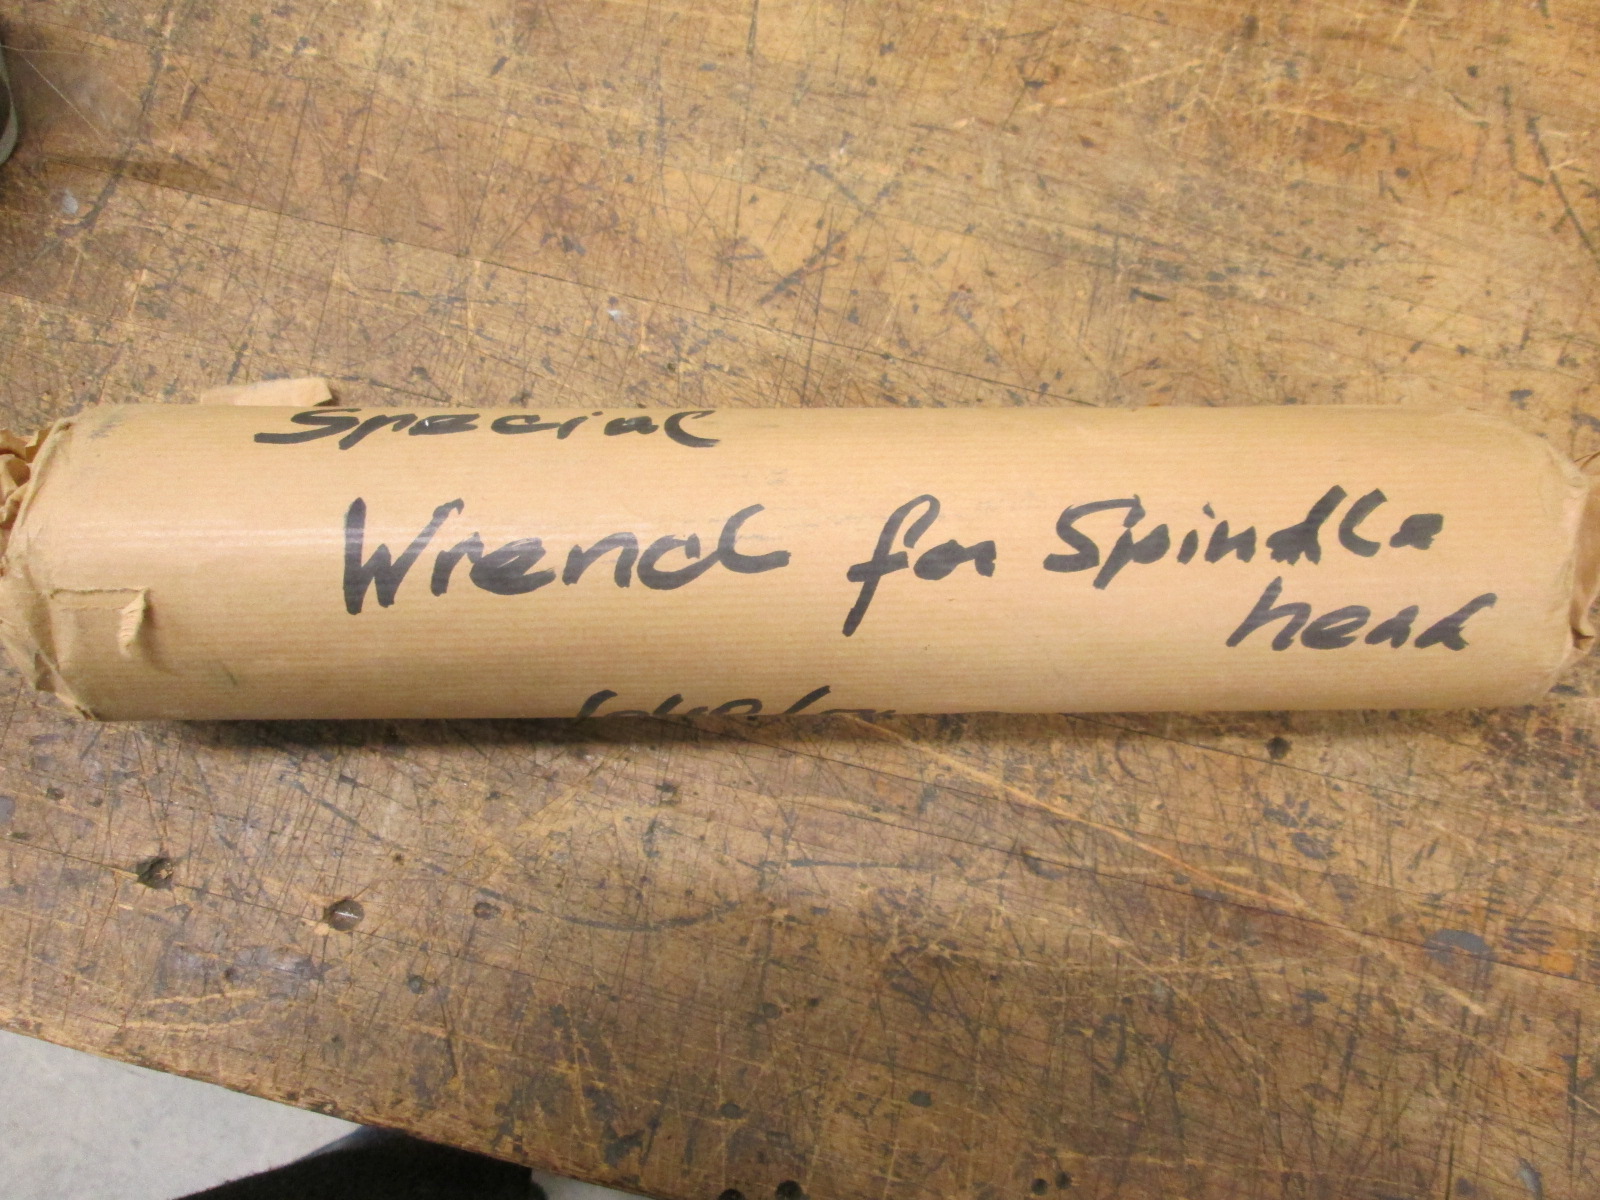 Special
Wrench for Spindle
head